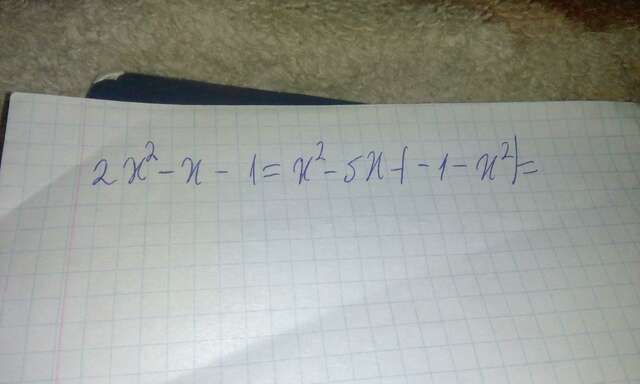 2x² - x - 1 = x² - 5x - (-1 - x²) =